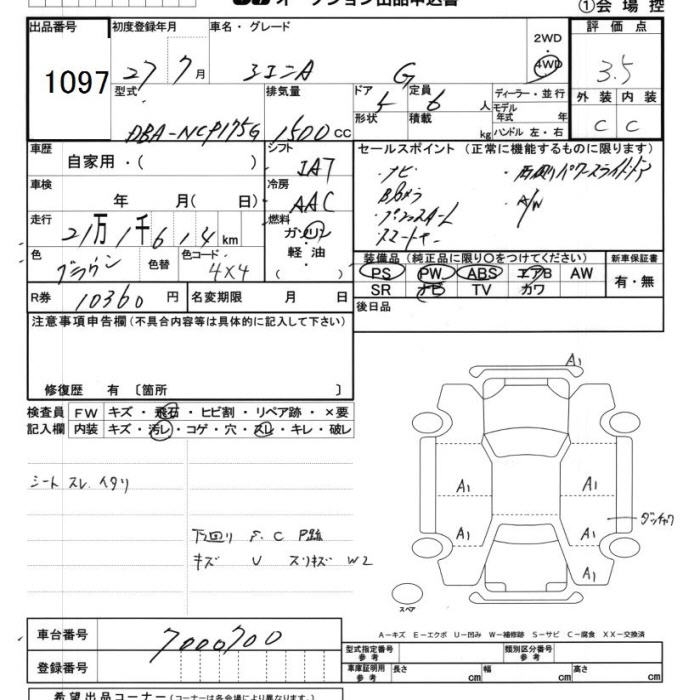 ①会場控
出品番号
1097
初度登録年月
27 7月
車名・グレード
シエンタ G
2WD
・
4WD
評価点
3.5
型式
DBA-NCP175G
排気量
1500cc
ドア
5
形状
定員
6人
積載
kg
ディーラー・並行
モデル
年式 年
ハンドル 左・右
外装 内装
C C
車歴
自家用・( )
シフト
IAT
セールスポイント (正常に機能するものに限ります)
・ナビ ・両側パワースライドドア
・Bカメラ ・A/W
・プッシュスタート
・スマートキー
車検
年 月( 日)
冷房
AAC
走行
21万1千614km
燃料
ガソリン
・
軽油
色
ブラウン
色替
色コード
4X4
装備品 (純正品に限り○をつけてください)
PS PW ABS エアB AW
SR ナビ TV カワ
新車保証書
有・無
R券 10360円
名変期限 月 日
後日品
注意事項申告欄(不具合内容等は具体的に記入して下さい)
修復歴 有 〔箇所 〕
検査員
記入欄
FW キズ・飛石・ヒビ割・リペア跡・×要
内装 キズ・汚レ・コゲ・穴・スレ・キレ・破レ
シート スレ.ヘタリ
下回り F.C P跡
キズ U スリキズ W2
A1
A1 A1
A1 A1
A1
ダッチャク
スペア
A−キズ E−エクボ U−凹み W−補修跡 S−サビ C−腐食 XX−交換済
車台番号
7000700
登録番号
型式指定番号
参考
類別区分番号
参考
車庫証明用
参考
長さ cm 幅 cm 高さ cm
希望出品コーナー(コーナーは各会場により異なります)